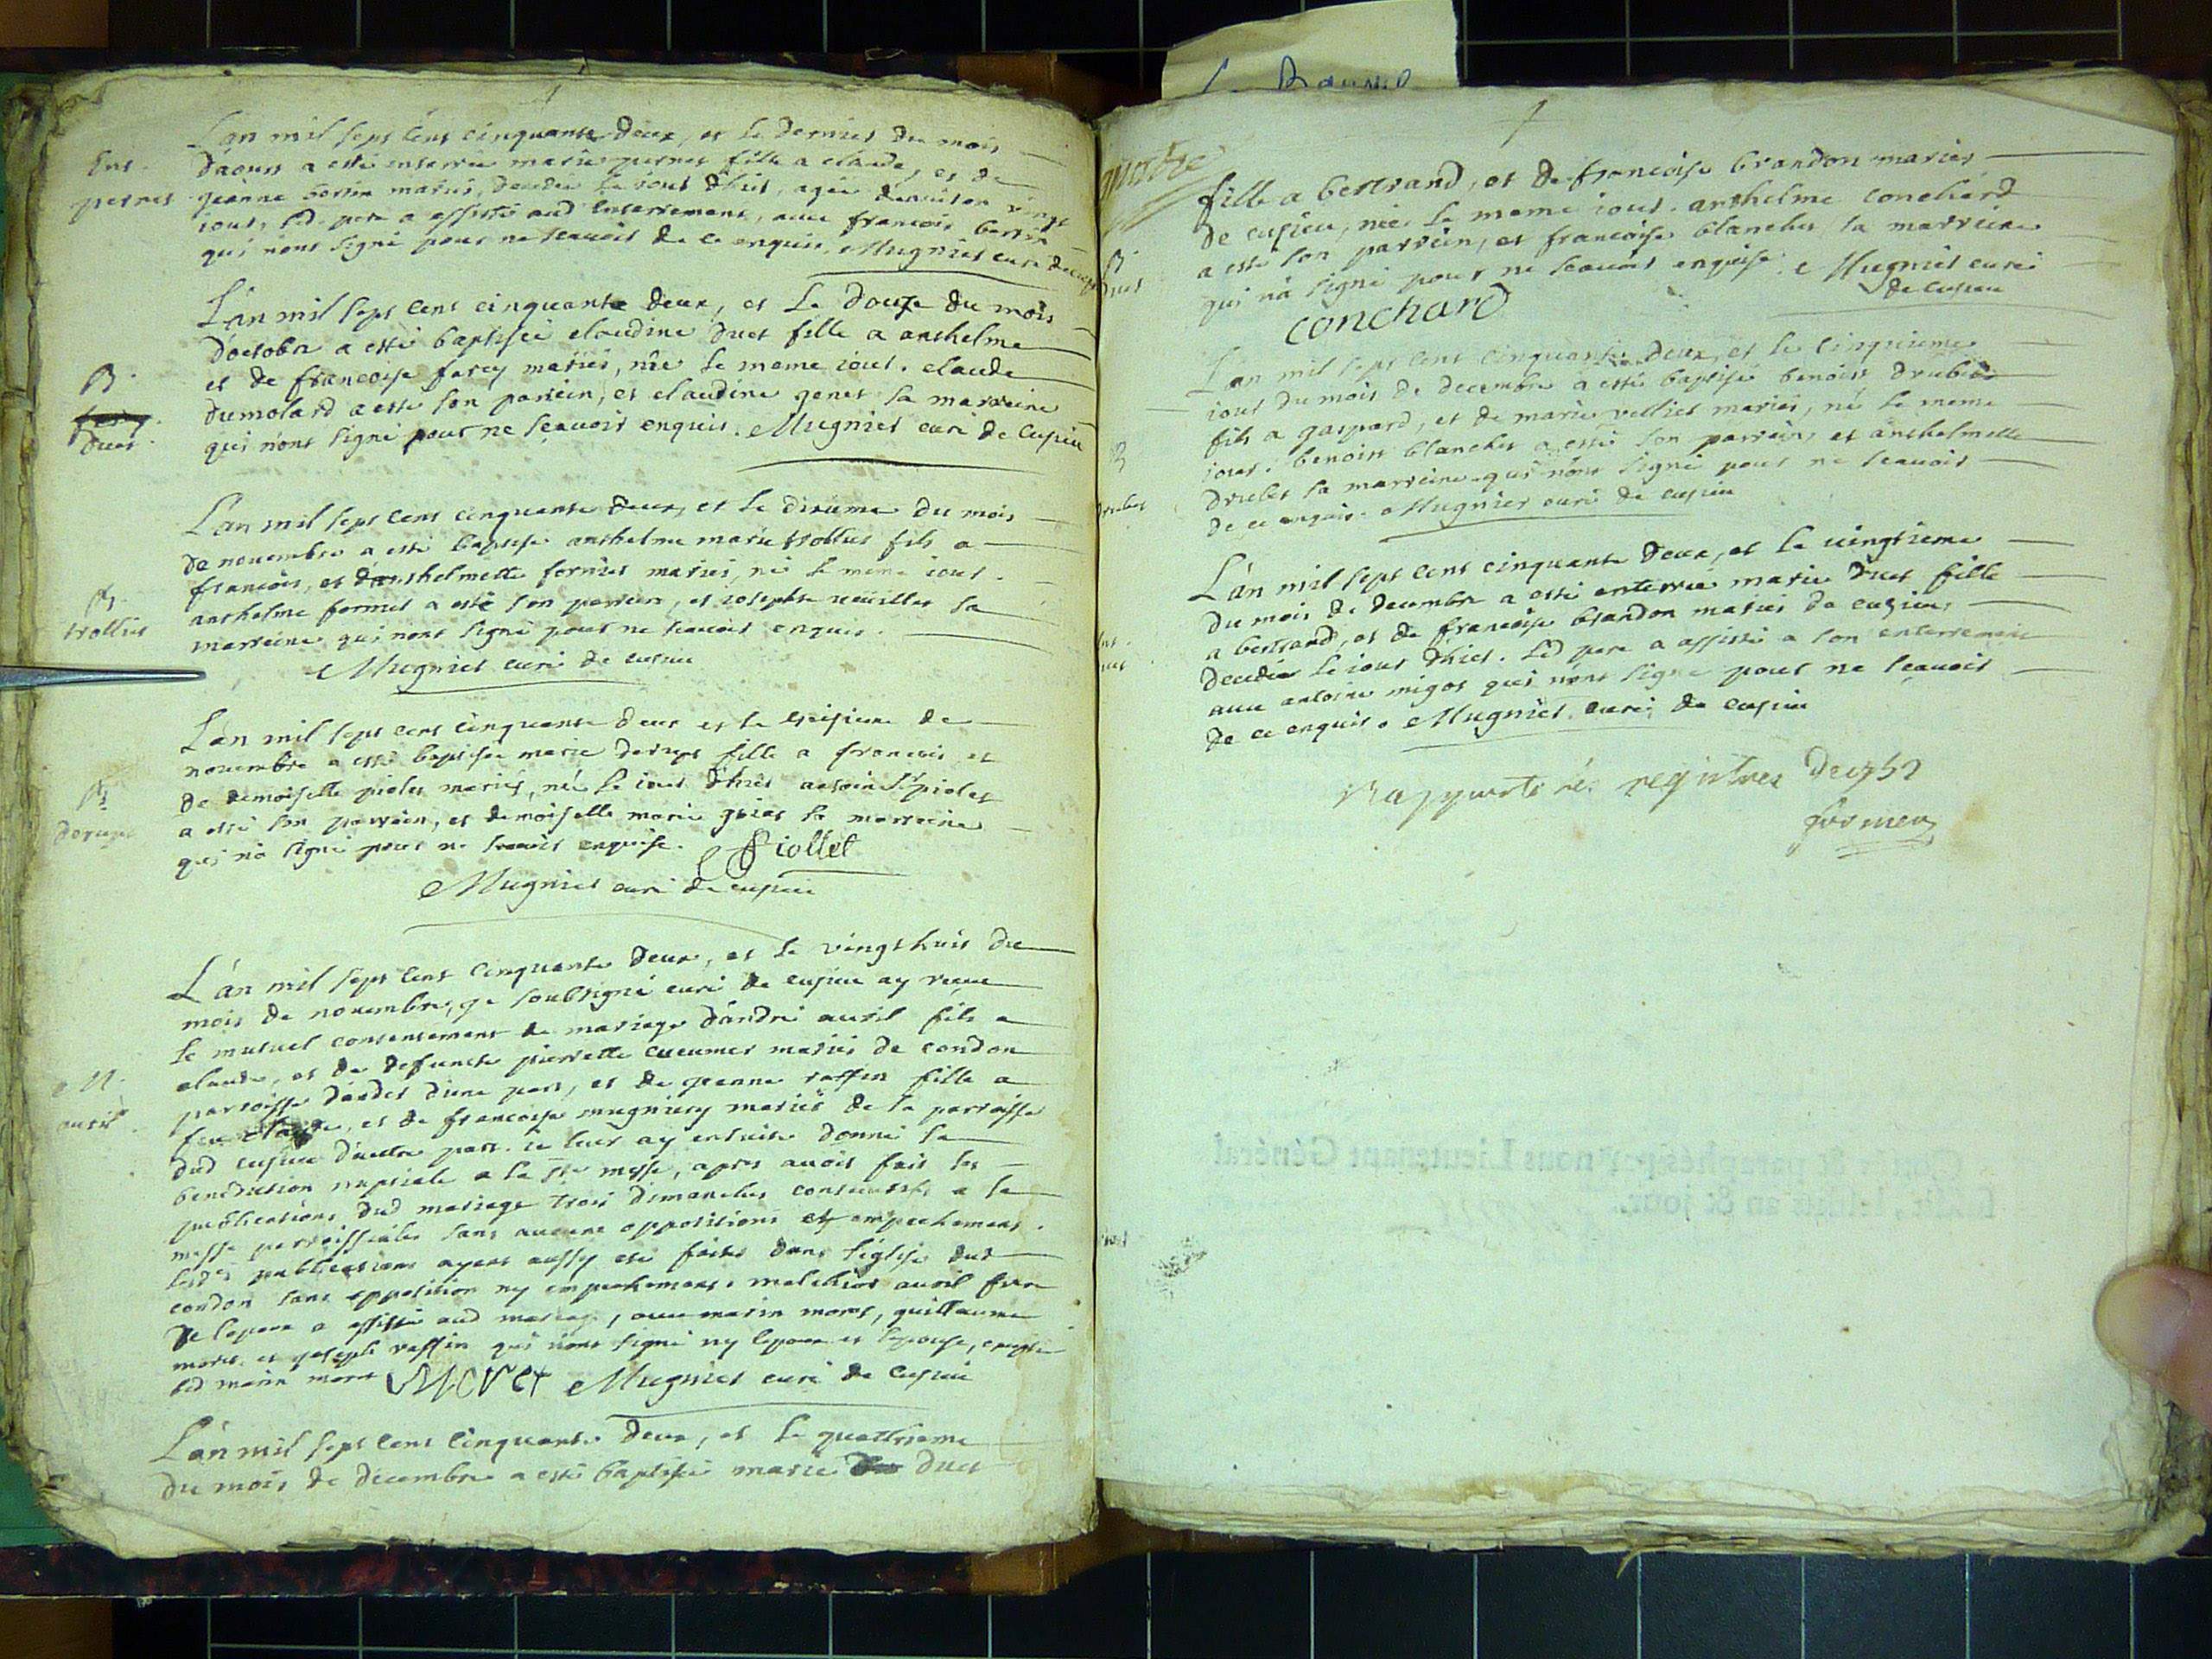 Ens.
pernet
L'an mil sept cens cinquante deux, et le dernier du mois
daoust a esté enterrée marie pernet fille a claude, et de
jeanne bertin mariés, decedée le jour d'hier, agée denviron vingt
jours, led. pere a assisté aud enterrement, avec francois bertin
qui n'ont signé pour ne scavoir de ce enquis. Mugnier curé de cusieu
B.
duet.
L'an mil sept cens cinquante deux, et le douze du mois
d'octobre a esté baptisée claudine duet fille a anthelme
et de francoise farcy mariés, née le meme jour. claude
dumolard a esté son parrein, et claudine genet sa marreine
qui n'ont signé pour ne scavoir enquis. Mugnier curé de Cusieu
B.
trollut
L'an mil sept cens cinquante deux, et le dixieme du mois
de novembre a esté baptisé anthelme marie trollut fils a
francois, et d'anthelmette fornier mariés, né le meme jour.
anthelme fornier a esté son parrein, et josephte veuillet sa
marreine qui n'ont signé pour ne scavoir enquis.
Mugnier curé de cusieu
B
derupt
L'an mil sept cens cinquante deux et le treisieme de
novembre a esté baptisée marie derupt fille a francois, et
de demoiselle piolet mariés, née le jour d'hier antoine piolet
a esté son parrein, et demoiselle marie grias sa marreine
qui n'a signé pour ne scavoir enquise. Piollet
Mugnier curé de cusieu
M.
avril.
L'an mil sept cens cinquante deux, et le vingt huit du
mois de novembre, je soubsigné curé de cusieu ay receu
le mutuel consentement de mariage d'andré avril fils a
claude, et de defuncte pierrette cucumet mariés de condon
parroisse d'andet d'une part, et de jeanne raffin fille a
feu claude, et de francoise mugniery mariés de la parroisse
dud cusieu d'autre part. je leur ay ensuite donné la
benediction nuptiale a la ste messe, apres avoir fait les
publications dud mariage trois dimanches consecutifs a la
messe parroissiales sans aucune oppositions et empechement.
lesd. publications ayant aussy esté faites dans l'eglise dud
condon sans opposition ny empechement. melchior avril frere
de l'epoux a assisté aud mariage, avec marin moret, guillaume
moret et joseph raffin qui n'ont signé ny l'epoux et l'epouse, excepté
led marin moret Moret Mugnier curé de Cusieu
L'an mil sept cens cinquante deux, et le quatrieme
du mois de decembre a esté baptisée marie duet
quatre
B.
duet
fille a bertrand, et de francoise brandon mariés
de cusieu, née le meme jour. anthelme conchard
a esté son parrein, et francoise blanchet sa marreine
qui n'a signé pour ne scavoir enquise. Mugnier curé
de cusieu
conchard
B
drubet
L'an mil sept cens cinquante deux, et le cinquieme
jour du mois de decembre a esté baptisé benoist drubet
fils a gaspard, et de marie velliet mariés, né le meme
jour. benoist blanchet a esté son parrein, et anthelmette
drubet sa marreine qui n'ont signé pour ne scavoir
de ce enquis. Mugnier curé de cusieu
Ens.
duet
L'an mil sept cens cinquante deux, et le vingtieme
du mois de decembre a esté enterrée marie duet fille
a bertrand, et de francoise brandon mariés de cusieu,
decedée le jour d'hier. led pere a assisté a son enterrement
avec antoine migot qui n'ont signé pour ne scavoir
de ce enquis. Mugnier curé de cusieu
Rapporté les registres de 1752